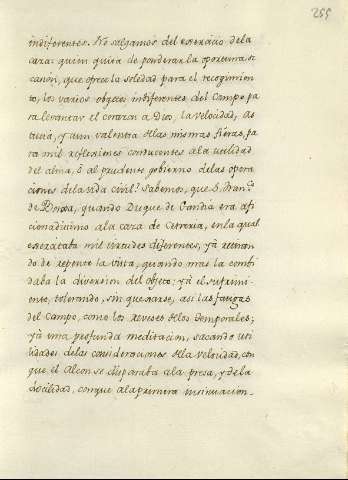 255
indiferentes. No salgamos del exercicio dela
caza: quien quira de ponderar la oportuna o-
casion, que ofrece la soledad para el recogimien
to, los varios objetos indiferentes del Campo pa
ra levantar el corazon a Dios, la velocidad, as
tucia, y aun valentia dlas mismas fieras, pa
ra mil reflexiones conducentes ala utilidad
del alma, ô al prudente gobierno delas opera
ciones dela vida civil? Sabemos, que S. Fran.co
de Borja, quando Duque de Gandia era afi
cionadisimo ala caza de Cetreria, enla qual
exercitaba mil virtudes diferentes; yà retiran
do de repente la vista, quando mas la combi
daba la diversion del objeto; yà el sufrimi-
ento, tolerando, sin quexarse, asi las fatigas
del Campo, como los reveses dlos temporales;
yà una profunda meditacion, sacando uti
lidades delas consideraciones dla velocidad, con
que el Alcon se disparaba ala presa, y dela
docilidad, conque ala primera insinuacion-